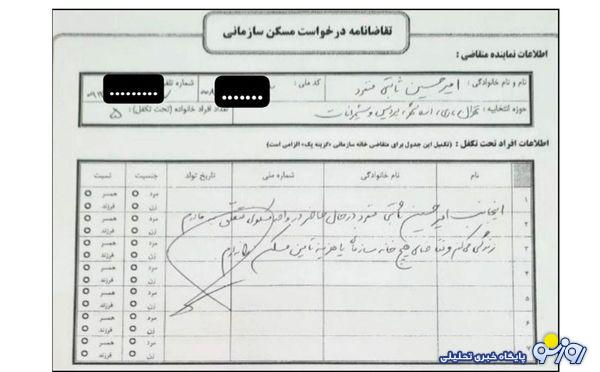 تقاضانامه درخواست مسکن سازمانی
اطلاعات نماینده متقاضی :
نام و نام خانوادگی : امیرحسین ثابتی منفرد کد ملی : شماره تلفن
حوزه انتخابیه : تهران، ری، اسلامشهر، پردیس و شمیرانات تعداد افراد خانواده (تحت تکفل) : ۵
اطلاعات افراد تحت تکفل : (تکمیل این جدول برای متقاضی خانه سازمانی «گزینه یک» الزامی است)
نام نام خانوادگی شماره ملی تاریخ تولد جنسیت نسبت
۱ مرد همسر
زن فرزند
اینجانب امیرحسین ثابتی منفرد در حال حاضر در واحد مسکونی متعلق مادرم
۲ مرد همسر
زن فرزند
زندگی می‌کنم و تقاضای هیچ خانه سازمانی یا هزینه تامین مسکن ندارم
۳ مرد همسر
زن فرزند
۴ مرد همسر
زن فرزند
۵ مرد همسر
زن فرزند
۶ مرد همسر
زن فرزند
۷ مرد همسر
زن فرزند
روز نو
پایگاه خبری تحلیلی